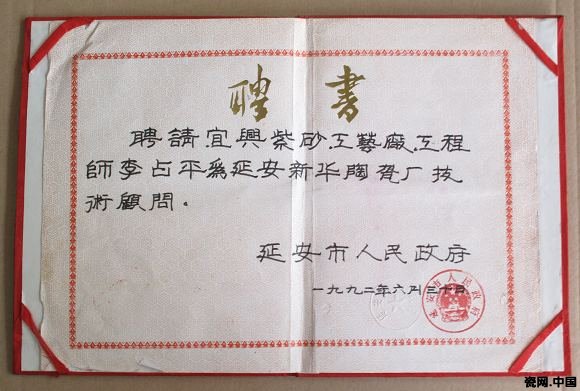 聘書
聘請宜興紫砂工藝廠工程
師李占平爲延安新华陶瓷厂技
術顧問。
延安市人民政府
一九九二年六月三十日
延安市人民政府
瓷网.中国